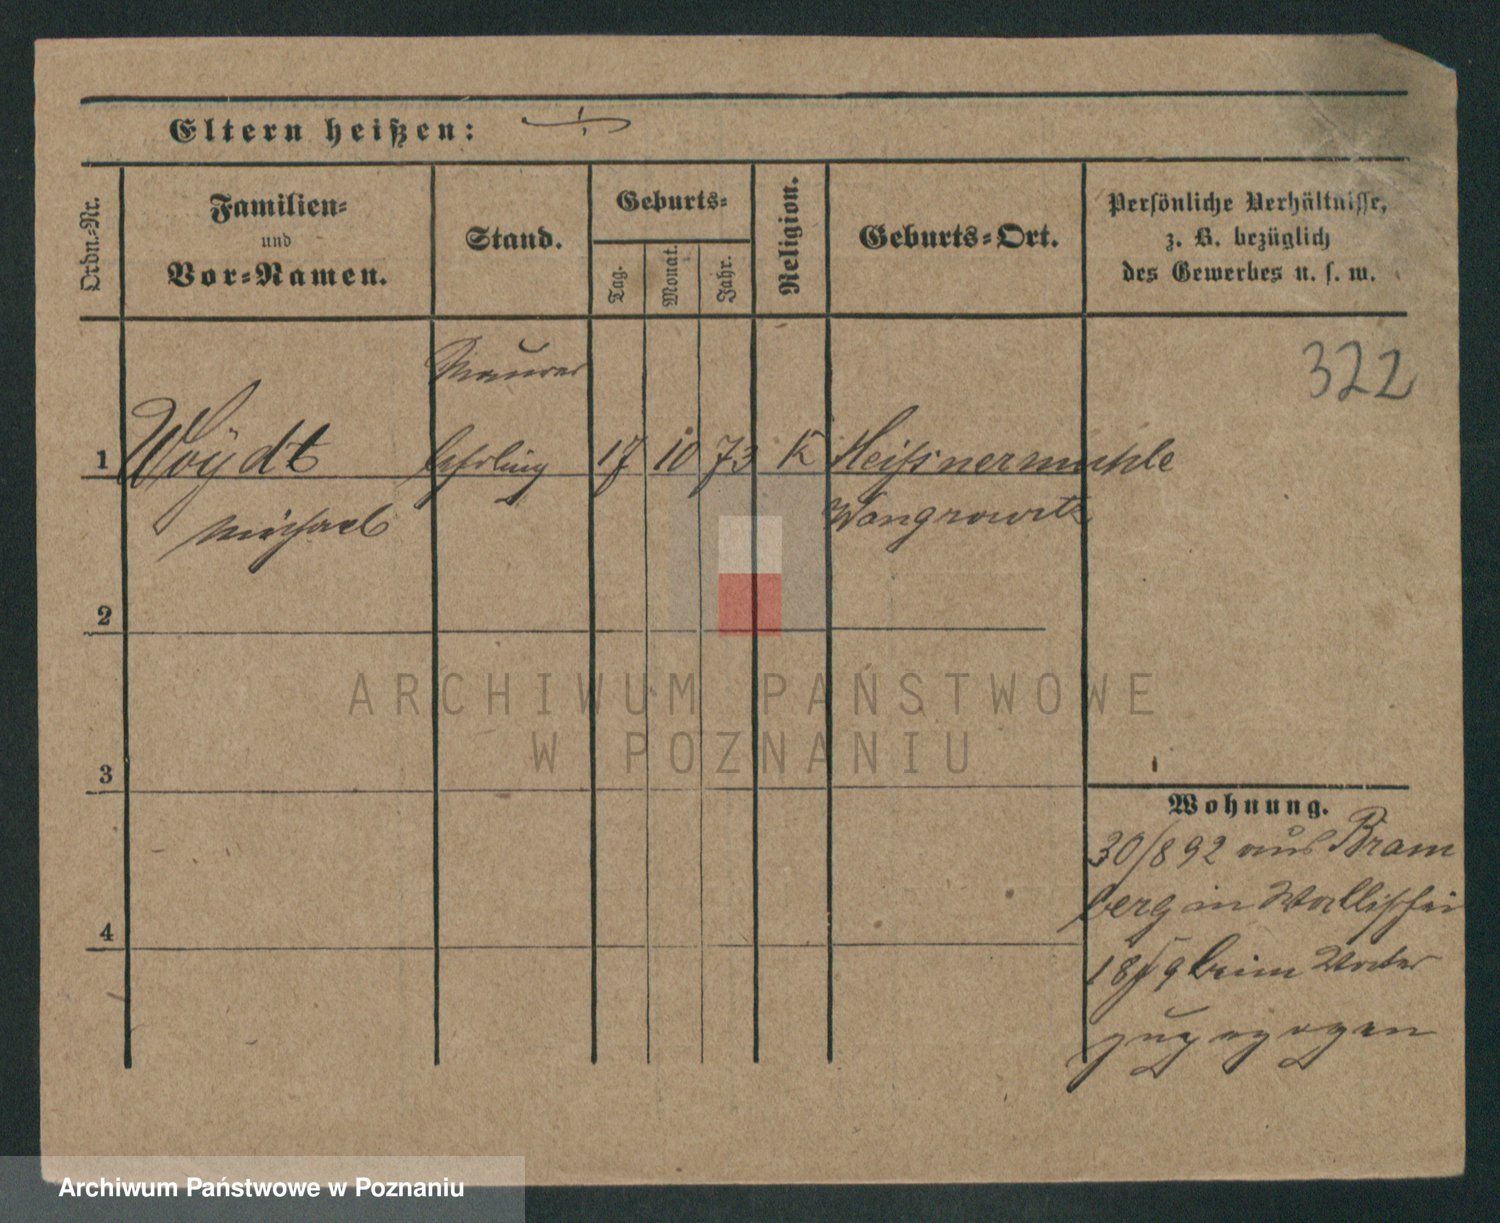 Eltern heißen:
Ordn.-Nr.
Familien-
und
Vor-Namen.
Stand.
Geburts-
Tag.
Monat.
Jahr.
Religion.
Geburts-Ort.
Persönliche Verhältnisse,
z. B. bezüglich
des Gewerbes u. s. w.
322
Maurer
1 Woÿdt Lehrling 17 10 73 K Heissnermuhle
Michael Wongrowitz
2
3
4
Wohnung.
30/8 92 aus Brom
berg in Wallischei
18/9 beim Vater
zugezogen
ARCHIWUM PAŃSTWOWE
W POZNANIU
Archiwum Państwowe w Poznaniu